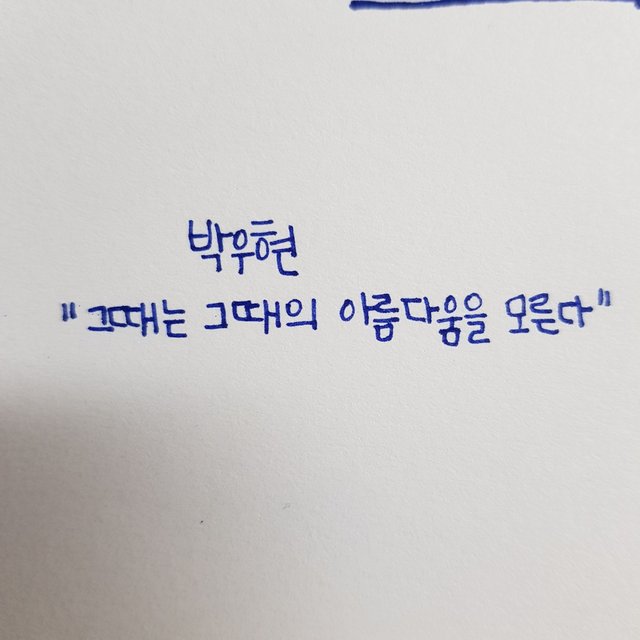 박우현
"그때는 그때의 아름다움을 모른다"